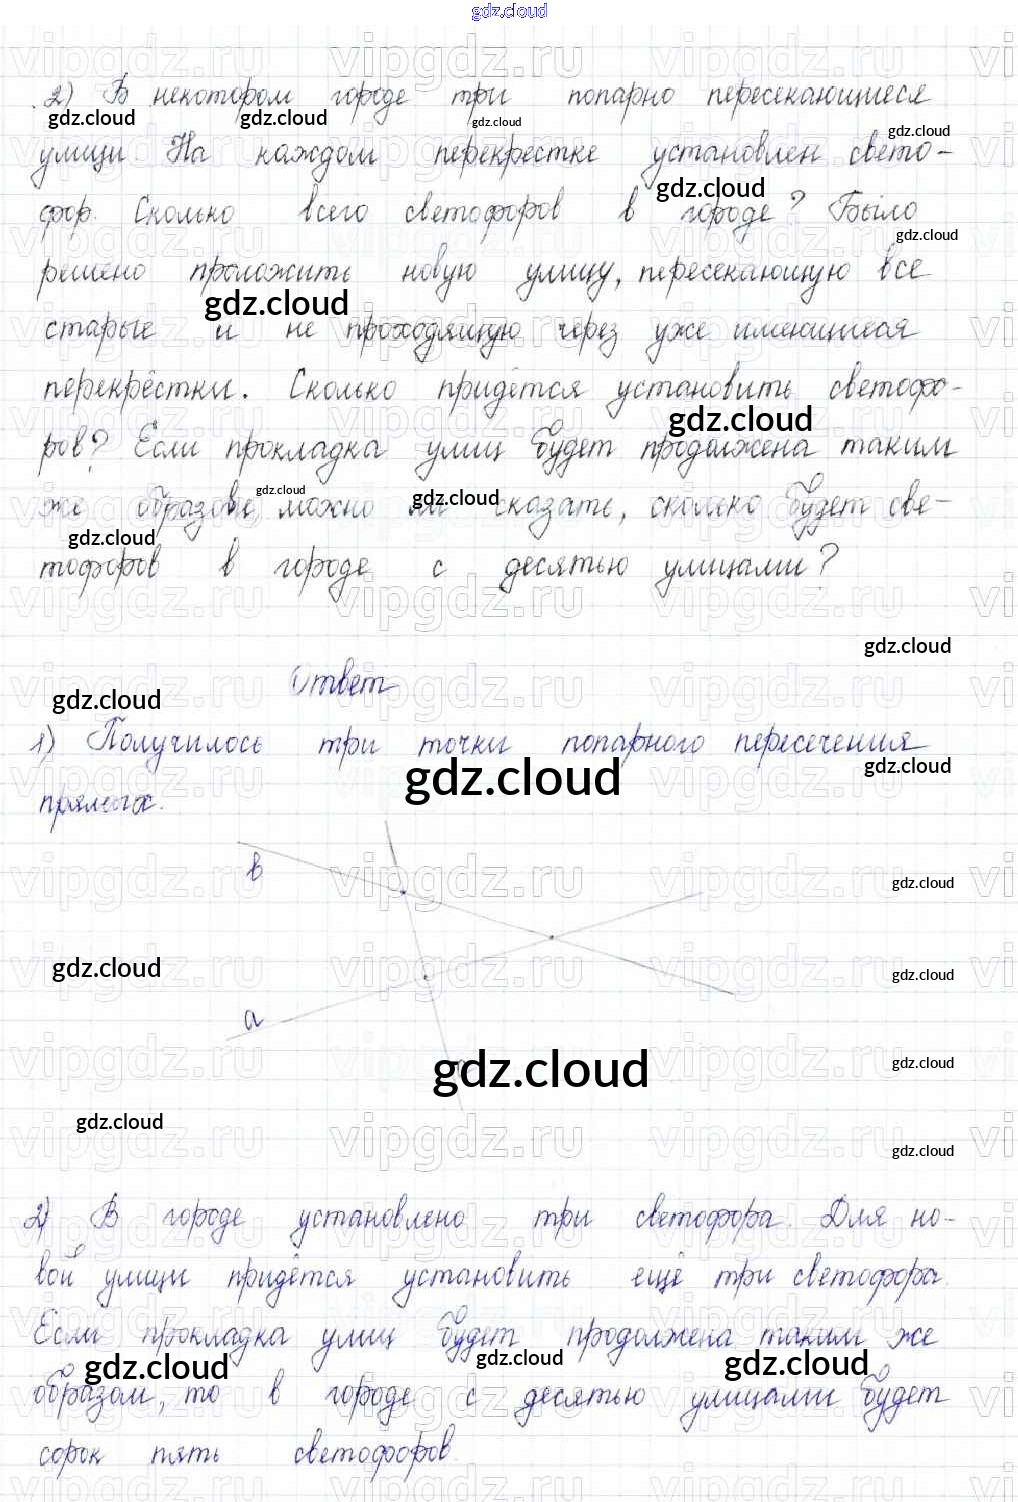 gdz.cloud
2) В некотором городе три попарно пересекающиеся
улицы. На каждом перекрестке установлен свето-
фор. Сколько всего светофоров в городе? Было
решено проложить новую улицу, пересекающую все
старые и не проходящую через уже имеющиеся
перекрёстки. Сколько придётся установить светофо-
ров? Если прокладка улиц будет продолжена таким
же образом, можно ли сказать, сколько будет све-
тофоров в городе с десятью улицами?
Ответ
1) Получилось три точки попарного пересечения
прямых.
в
а
2) В городе установлено три светофора. Для но-
вой улицы придётся установить ещё три светофора.
Если прокладка улиц будет продолжена таким же
образом, то в городе с десятью улицами будет
сорок пять светофоров.